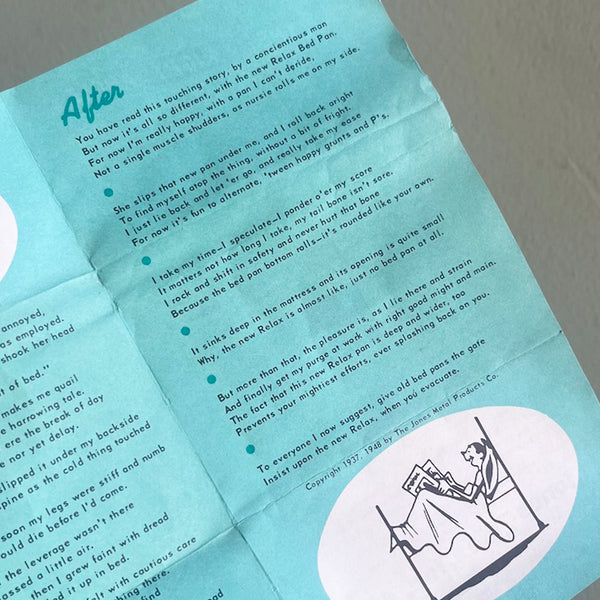 After
You have read this touching story, by a concientious man
But now it's all so different, with the new Relax Bed Pan.
For now I'm really happy, with a pan I can't deride,
Not a single muscle shudders, as nursie rolls me on my side.
She slips that new pan under me, and I roll back aright
To find myself atop the thing, without a bit of fright.
I just lie back and let 'er go, and really take my ease
For now it's fun to alternate, 'tween happy grunts and P's.
I take my time—I speculate—I ponder o'er my score
It matters not how long I take, my tail bone isn't sore.
I rock and shift in safety and never hurt that bone
Because the bed pan bottom rolls—it's rounded like your own.
It sinks deep in the mattress and its opening is quite small
Why, the new Relax is almost like, just no bed pan at all.
But more than that, the pleasure is, as I lie there and strain
And finally get my purge at work with right good might and main.
The fact that this new Relax pan is deep and wider, too
Prevents your mightiest efforts, ever splashing back on you.
To everyone I now suggest, give old bed pans the gate
Insist upon the new Relax, when you evacuate.
Copyright 1937, 1948 by The Jones Metal Products Co.
annoyed,
as employed.
shook her head
of bed."
makes me quail
harrowing tale.
ere the break of day
nor yet delay.
slipped it under my backside
spine as the cold thing touched
soon my legs were stiff and numb
would die before I'd come.
the leverage wasn't there
passed a little air.
then I grew faint with dread
it up in bed.
felt with cautious care
thing there.
find